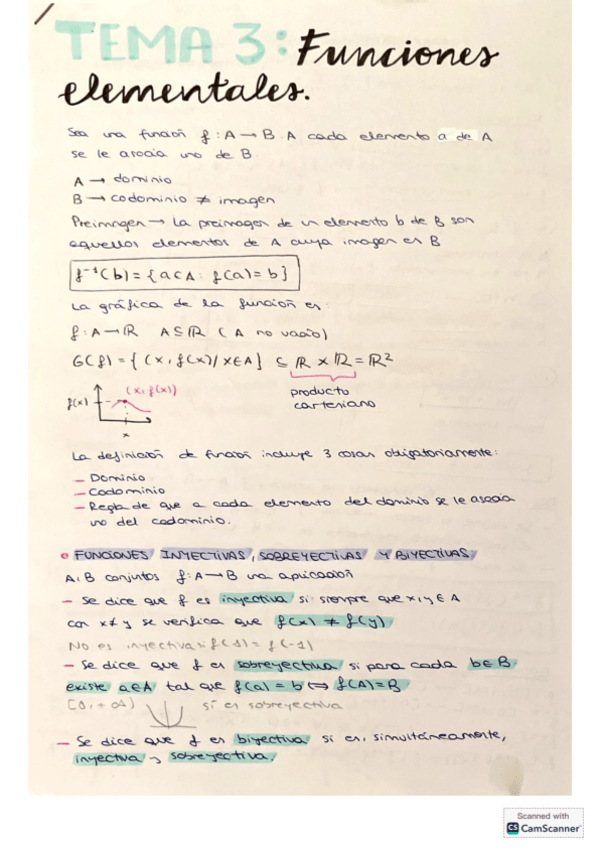 TEMA 3: Funciones
elementales.
Sea una función f: A → B. A cada elemento a de A
se le asocia uno de B.
A → dominio
B → codominio ≠ imagen
Preimagen → La preimagen de un elemento b de B son
aquellos elementos de A cuya imagen es B
f⁻¹(b) = {a ∈ A: f(a) = b}
La gráfica de la función es:
f: A → ℝ A ⊆ ℝ (A no vacío)
G(f) = {(x, f(x)/ x ∈ A} ⊆ ℝ × ℝ = ℝ²
producto
cartesiano
(x, f(x))
f(x)
x
La definición de función incluye 3 cosas obligatoriamente:
- Dominio
- Codominio
- Regla de que a cada elemento del dominio se le asocia
uno del codominio.
• FUNCIONES INYECTIVAS, SOBREYECTIVAS Y BIYECTIVAS
A, B conjuntos f: A → B una aplicación
- Se dice que f es inyectiva si siempre que x, y ∈ A
con x ≠ y se verifica que f(x) ≠ f(y)
No es inyectiva: f(1) = f(-1)
- Se dice que f es sobreyectiva si para cada b ∈ B
existe a ∈ A tal que f(a) = b ⟺ f(A) = B
[0, +∞) sí es sobreyectiva
- Se dice que f es biyectiva si es, simultáneamente,
inyectiva y sobreyectiva.
Scanned with
CS CamScanner